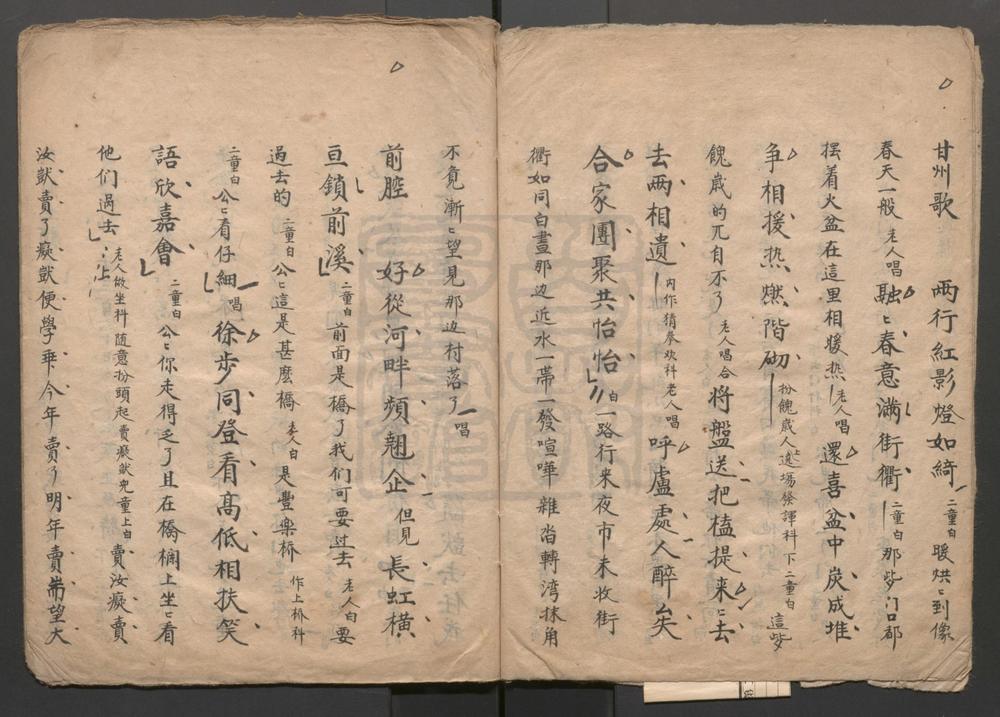 甘州歌 两行紅影燈如綺 二童白 暖烘〻到像
春天一般 老人唱 融〻春意滿街衢 二童白 那些门口都
摆着火盆在這里相煖热 老人唱 還喜盆中炭成堆
争相援热燃階砌 扮餽歳人遶場發諢科下二童白 這些
餽歳的兀自不了 老人唱合 将盤送把榼提来〻去
去两相遗 内作猜拳欢科老人唱 呼盧處人醉矣
合家團聚共怡怡 白 一路行来夜市未收街
衢如同白晝那边近水一帯一發喧嘩雜沓轉湾抹角
不覓漸〻望見那边村落了 唱
前腔 好從河畔頻翹企 但见 長虹橫
亘鎖前溪 二童白 前面是橋了我们可要过去 老人白 要
過去的 二童白 公〻這是甚麽橋 老人白 是豐楽桥 作上桥科
二童白 公〻看仔細 唱 徐步同登看髙低相扶笑
語欣嘉會 二童白 公〻你走得乏了且在橋欄上坐〻看
他们過去 老人做坐科随意扮頭起賣癡獃児童上白 賣汝癡賣
汝獃賣了癡獃便學乖今年賣了明年賣耑望大